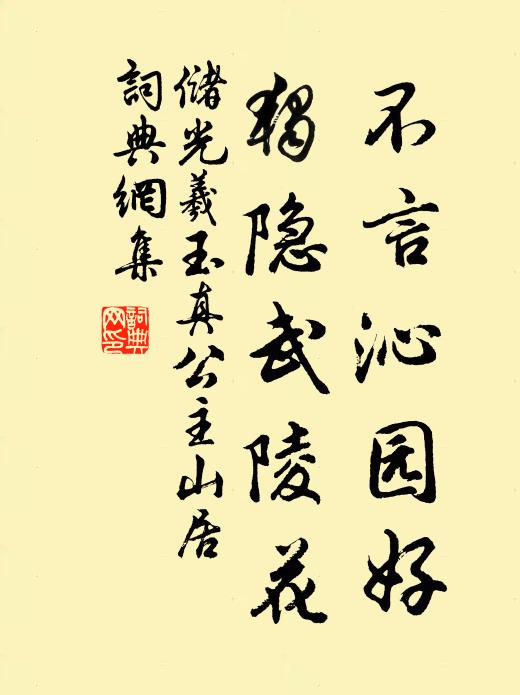 不言沁园好
独隐武陵花
储光羲玉真公主山居
詞典網集
詞典
网印